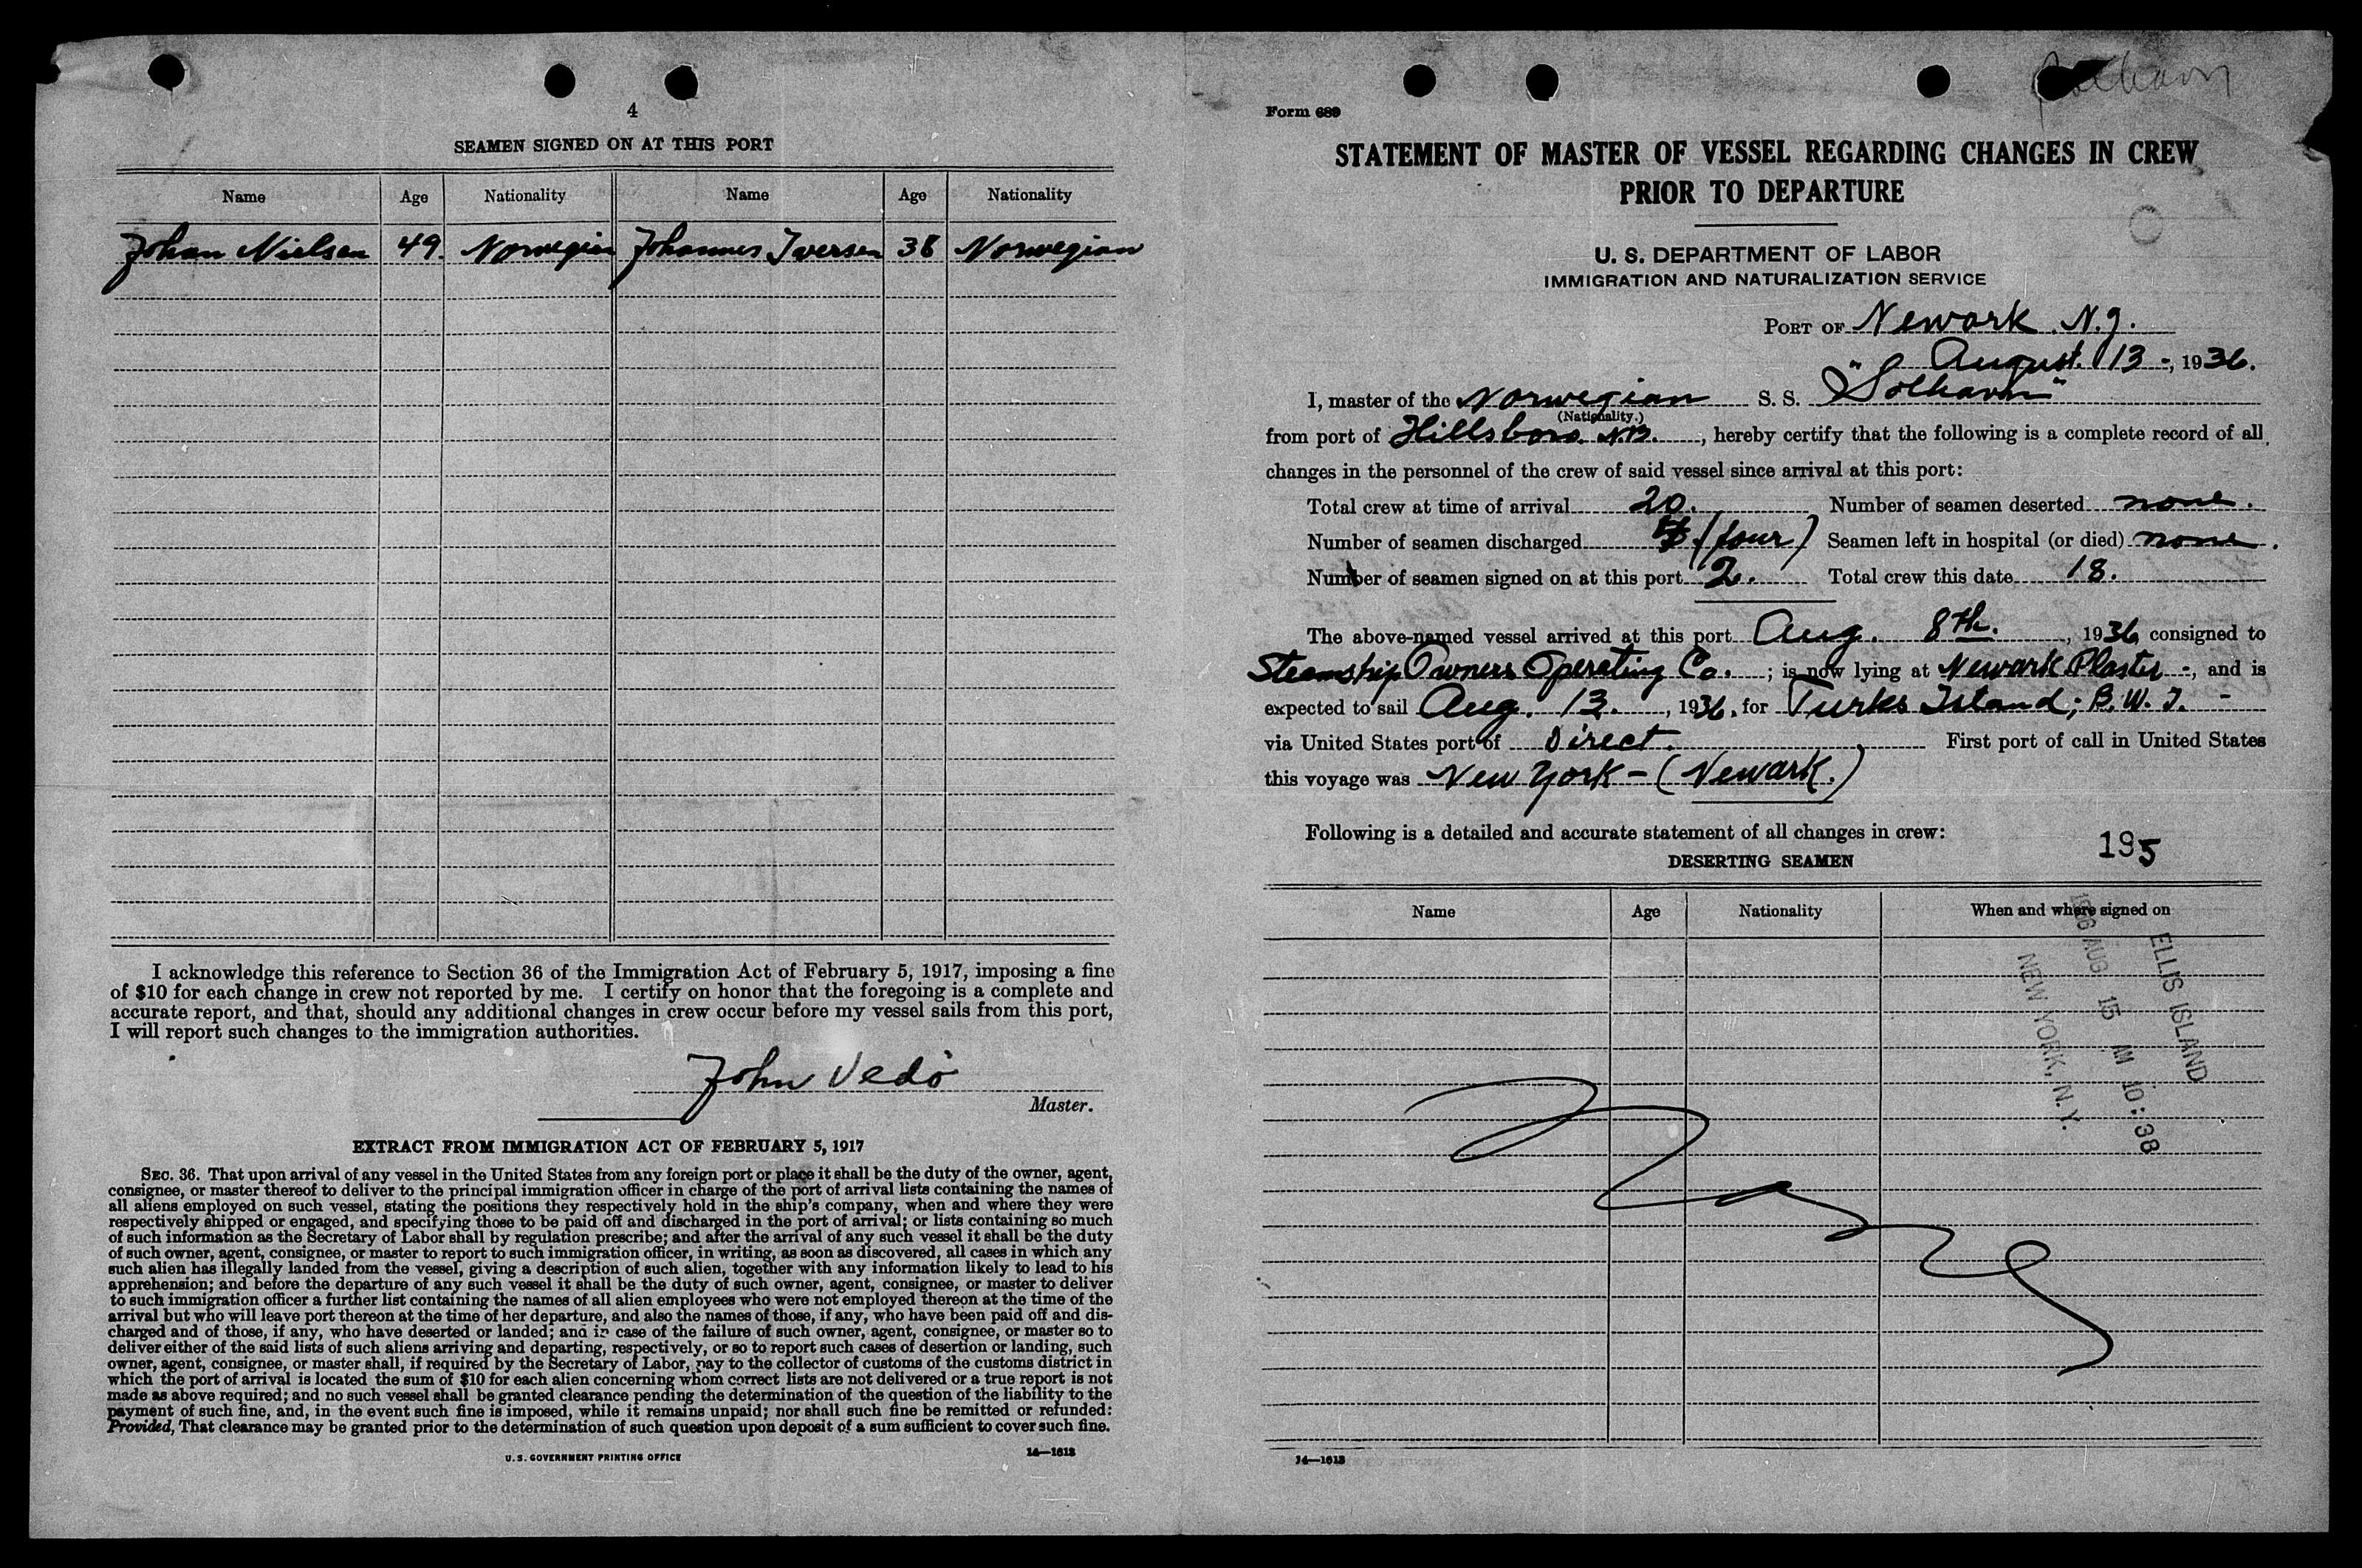 4
SEAMEN SIGNED ON AT THIS PORT
Name Age Nationality Name Age Nationality
Johan Nielsen 49. Norwegian Johannes Iversen 38 Norwegian
I acknowledge this reference to Section 36 of the Immigration Act of February 5, 1917, imposing a fine
of $10 for each change in crew not reported by me. I certify on honor that the foregoing is a complete and
accurate report, and that, should any additional changes in crew occur before my vessel sails from this port,
I will report such changes to the immigration authorities.
John Vedö
Master.
EXTRACT FROM IMMIGRATION ACT OF FEBRUARY 5, 1917
SEC. 36. That upon arrival of any vessel in the United States from any foreign port or place it shall be the duty of the owner, agent,
consignee, or master thereof to deliver to the principal immigration officer in charge of the port of arrival lists containing the names of
all aliens employed on such vessel, stating the positions they respectively hold in the ship's company, when and where they were
respectively shipped or engaged, and specifying those to be paid off and discharged in the port of arrival; or lists containing so much
of such information as the Secretary of Labor shall by regulation prescribe; and after the arrival of any such vessel it shall be the duty
of such owner, agent, consignee, or master to report to such immigration officer, in writing, as soon as discovered, all cases in which any
such alien has illegally landed from the vessel, giving a description of such alien, together with any information likely to lead to his
apprehension; and before the departure of any such vessel it shall be the duty of such owner, agent, consignee, or master to deliver
to such immigration officer a further list containing the names of all alien employees who were not employed thereon at the time of the
arrival but who will leave port thereon at the time of her departure, and also the names of those, if any, who have been paid off and dis-
charged and of those, if any, who have deserted or landed; and in case of the failure of such owner, agent, consignee, or master so to
deliver either of the said lists of such aliens arriving and departing, respectively, or so to report such cases of desertion or landing, such
owner, agent, consignee, or master shall, if required by the Secretary of Labor, pay to the collector of customs of the customs district in
which the port of arrival is located the sum of $10 for each alien concerning whom correct lists are not delivered or a true report is not
made as above required; and no such vessel shall be granted clearance pending the determination of the question of the liability to the
payment of such fine, and, in the event such fine is imposed, while it remains unpaid; nor shall such fine be remitted or refunded:
Provided, That clearance may be granted prior to the determination of such question upon deposit of a sum sufficient to cover such fine.
U. S. GOVERNMENT PRINTING OFFICE 14—1613
Solhavn
Form 689
STATEMENT OF MASTER OF VESSEL REGARDING CHANGES IN CREW
PRIOR TO DEPARTURE
U. S. DEPARTMENT OF LABOR
IMMIGRATION AND NATURALIZATION SERVICE
PORT OF Newark N.J.
August 13 -, 1936.
I, master of the Norwegian S. S. "Solhavn"
(Nationality.)
from port of Hillsboro N.B., hereby certify that the following is a complete record of all
changes in the personnel of the crew of said vessel since arrival at this port:
Total crew at time of arrival 20. Number of seamen deserted none.
Number of seamen discharged (four) Seamen left in hospital (or died) none.
Number of seamen signed on at this port 2. Total crew this date 18.
The above-named vessel arrived at this port Aug. 8th., 1936, consigned to
Steamship Owners Operating Co.; is now lying at Newark Plaster -, and is
expected to sail Aug. 13., 1936, for Turks Island; B.W.I. -
via United States port of Direct. First port of call in United States
this voyage was New York - (Newark.)
Following is a detailed and accurate statement of all changes in crew:
195
DESERTING SEAMEN
Name Age Nationality When and where signed on
ELLIS ISLAND
1936 AUG 15 AM 10:38
NEW YORK, N.Y.
14—1613